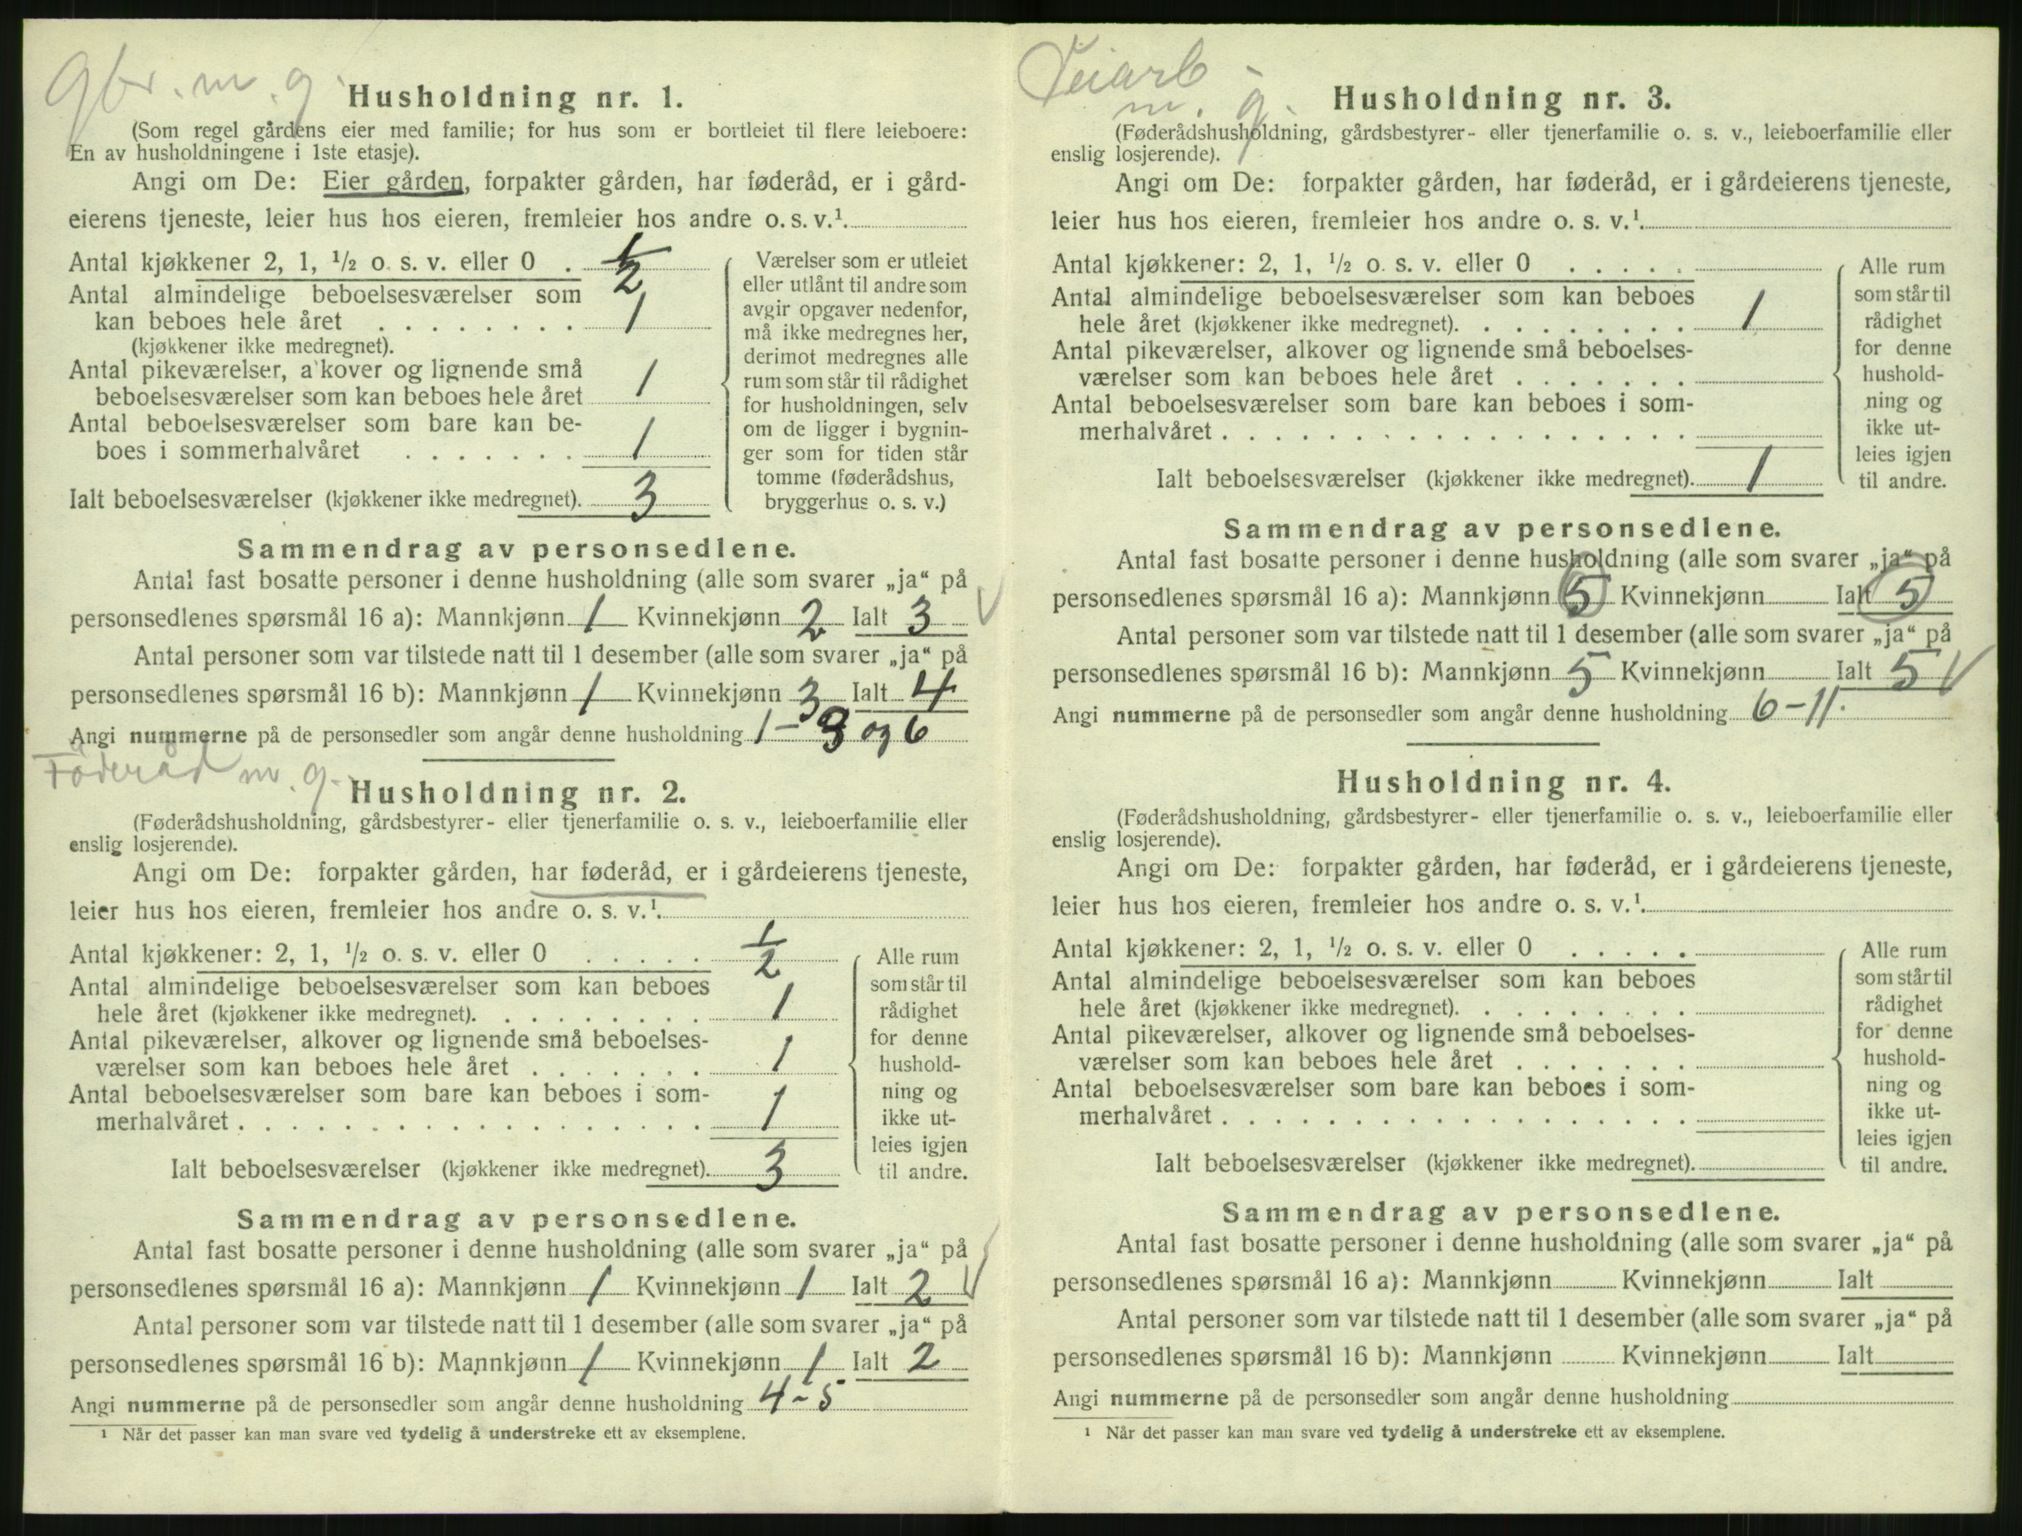 gbr. m. g.
Husholdning nr. 1.
(Som regel gårdens eier med familie; for hus som er bortleiet til flere leieboere:
En av husholdningene i 1ste etasje).
Angi om De: Eier gården, forpakter gården, har føderåd, er i gård-
eierens tjeneste, leier hus hos eieren, fremleier hos andre o. s. v.¹.
Antal kjøkkener 2, 1, ½ o. s. v. eller 0 . ½
Antal almindelige beboelsesværelser som
kan beboes hele året . . . . . . . . 1
(kjøkkener ikke medregnet).
Antal pikeværelser, alkover og lignende små
beboelsesværelser som kan beboes hele året 1
Antal beboelsesværelser som bare kan be-
boes i sommerhalvåret . . . . . . . 1
Ialt beboelsesværelser (kjøkkener ikke medregnet). 3
Værelser som er utleiet
eller utlånt til andre som
avgir opgaver nedenfor,
må ikke medregnes her,
derimot medregnes alle
rum som står til rådighet
for husholdningen, selv
om de ligger i bygnin-
ger som for tiden står
tomme (føderådshus,
bryggerhus o. s. v.)
Sammendrag av personsedlene.
Antal fast bosatte personer i denne husholdning (alle som svarer „ja“ på
personsedlenes spørsmål 16 a): Mannkjønn 1 Kvinnekjønn 2 Ialt 3
Antal personer som var tilstede natt til 1 desember (alle som svarer „ja“ på
personsedlenes spørsmål 16 b): Mannkjønn 1 Kvinnekjønn 3 Ialt 4
Angi nummerne på de personsedler som angår denne husholdning 1-3 og 6
Føderåd m. g.
Husholdning nr. 2.
(Føderådshusholdning, gårdsbestyrer- eller tjenerfamilie o. s. v., leieboerfamilie eller
enslig losjerende).
Angi om De: forpakter gården, har føderåd, er i gårdeierens tjeneste,
leier hus hos eieren, fremleier hos andre o. s. v.¹.
Antal kjøkkener: 2, 1, ½ o. s. v. eller 0 . . . . . ½
Antal almindelige beboelsesværelser som kan beboes
hele året (kjøkkener ikke medregnet). . . . . . . . . 1
Antal pikeværelser, alkover og lignende små beboelses-
værelser som kan beboes hele året . . . . . . . 1
Antal beboelsesværelser som bare kan beboes i som-
merhalvåret . . . . . . . . . . . . . . . . . . 1
Ialt beboelsesværelser (kjøkkener ikke medregnet). 3
Alle rum
som står til
rådighet
for denne
hushold-
ning og
ikke ut-
leies igjen
til andre.
Sammendrag av personsedlene.
Antal fast bosatte personer i denne husholdning (alle som svarer „ja“ på
personsedlenes spørsmål 16 a): Mannkjønn 1 Kvinnekjønn 1 Ialt 2
Antal personer som var tilstede natt til 1 desember (alle som svarer „ja“ på
personsedlenes spørsmål 16 b): Mannkjønn 1 Kvinnekjønn 1 Ialt 2
Angi nummerne på de personsedler som angår denne husholdning 4-5
¹ Når det passer kan man svare ved tydelig å understreke ett av eksemplene.
Veiarb
m. g.
Husholdning nr. 3.
(Føderådshusholdning, gårdsbestyrer- eller tjenerfamilie o. s. v., leieboerfamilie eller
enslig losjerende).
Angi om De: forpakter gården, har føderåd, er i gårdeierens tjeneste,
leier hus hos eieren, fremleier hos andre o. s. v.¹.
Antal kjøkkener: 2, 1, ½ o. s. v. eller 0 . . . . .
Antal almindelige beboelsesværelser som kan beboes
hele året (kjøkkener ikke medregnet). . . . . . . . . 1
Antal pikeværelser, alkover og lignende små beboelses-
værelser som kan beboes hele året . . . . . . .
Antal beboelsesværelser som bare kan beboes i som-
merhalvåret . . . . . . . . . . . . . . . . . .
Ialt beboelsesværelser (kjøkkener ikke medregnet). 1
Alle rum
som står til
rådighet
for denne
hushold-
ning og
ikke ut-
leies igjen
til andre.
Sammendrag av personsedlene.
Antal fast bosatte personer i denne husholdning (alle som svarer „ja“ på
personsedlenes spørsmål 16 a): Mannkjønn 5 Kvinnekjønn Ialt 5
Antal personer som var tilstede natt til 1 desember (alle som svarer „ja“ på
personsedlenes spørsmål 16 b): Mannkjønn 5 Kvinnekjønn Ialt 5
Angi nummerne på de personsedler som angår denne husholdning 6-11.
Husholdning nr. 4.
(Føderådshusholdning, gårdsbestyrer- eller tjenerfamilie o. s. v., leieboerfamilie eller
enslig losjerende).
Angi om De: forpakter gården, har føderåd, er i gårdeierens tjeneste,
leier hus hos eieren, fremleier hos andre o. s. v.¹.
Antal kjøkkener: 2, 1, ½ o. s. v. eller 0 . . . . .
Antal almindelige beboelsesværelser som kan beboes
hele året (kjøkkener ikke medregnet). . . . . . . . .
Antal pikeværelser, alkover og lignende små beboelses-
værelser som kan beboes hele året . . . . . . .
Antal beboelsesværelser som bare kan beboes i som-
merhalvåret . . . . . . . . . . . . . . . . . .
Ialt beboelsesværelser (kjøkkener ikke medregnet).
Alle rum
som står til
rådighet
for denne
hushold-
ning og
ikke ut-
leies igjen
til andre.
Sammendrag av personsedlene.
Antal fast bosatte personer i denne husholdning (alle som svarer „ja“ på
personsedlenes spørsmål 16 a): Mannkjønn Kvinnekjønn Ialt
Antal personer som var tilstede natt til 1 desember (alle som svarer „ja“ på
personsedlenes spørsmål 16 b): Mannkjønn Kvinnekjønn Ialt
Angi nummerne på de personsedler som angår denne husholdning
¹ Når det passer kan man svare ved tydelig å understreke ett av eksemplene.